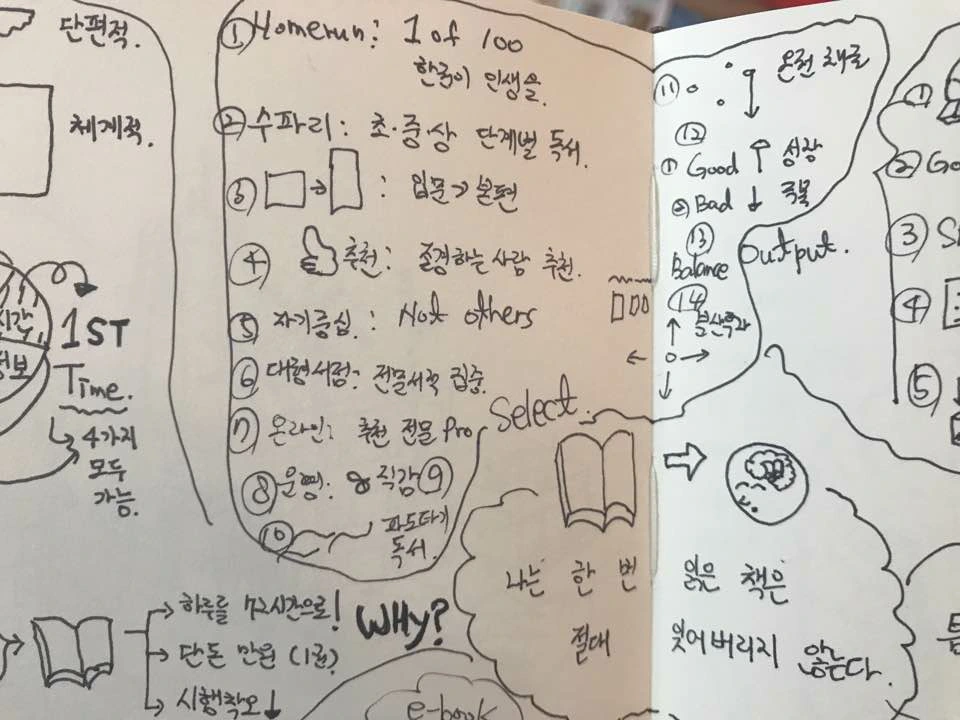 단편적.
체계적.
시간
정보
1ST
Time.
4가지
모두
가능.
① Homerun: 1 of 100
한국이 인생을.
② 수파리: 초·중·상 단계별 독서.
③ : 입문 > 본편
④ 추천: 존경하는 사람 추천.
⑤ 자기중심: Not others
⑥ 대형서점: 전문서적 집중.
⑦ 온라인: 추천 전문 Pro
⑧ 운명: 직감 ⑨
⑩ 파도타기
독서.
Select.
⑪
⑫
① Good 성장
② Bad
⑬
Balance
⑭
Output.
나는 한 번 읽은 책은
절대 잊어버리지 않는다.
하루를 72시간으로!
단돈 만원
시행착오
WHY?
e-book
①
②
③
④
⑤